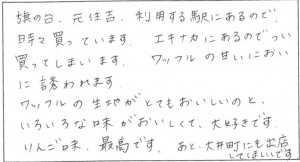 旗の台、元住吉、利用する駅にあるので、
時々買っています。エキナカにあるのでつい
買ってしまいます。ワッフルの甘いにおい
に誘われます。
ワッフルの生地がとてもおいしいのと、
いろいろな味がおいしくて、大好きです。
りんご味、最高です。あと、大井町にも出店
してほしいです